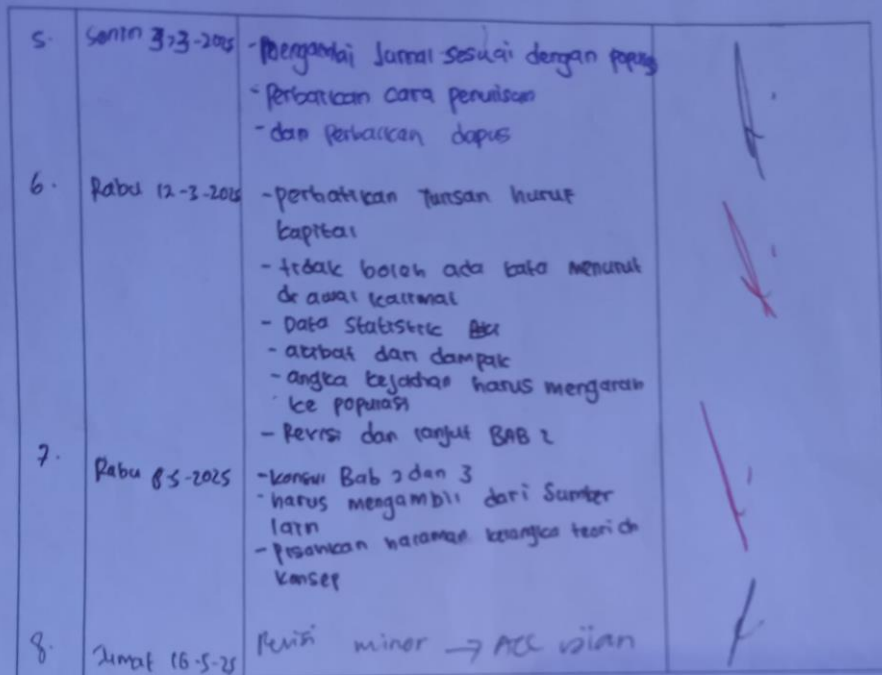 5. Senin 3-3-2025 - Mengambil Jurnal sesuai dengan
- Perbaikan cara penulisan
- dan Perbaikan dapus
6. Rabu 12-3-2025 - perbaikan Tulisan huruf
kapital
- tidak boleh ada kata menurut
di awal kalimat
- Data Statistik
- akibat dan dampak
- angka kejadian harus mengarah
ke populasi
- Revisi dan lanjut BAB 2
7. Rabu 8-5-2025 - konsul Bab 2 dan 3
- harus mengambil dari Sumber
lain
- pisahkan halaman kerangka teori dn
konsep
8. Jumat 16-5-25 Revisi minor → ACC ujian